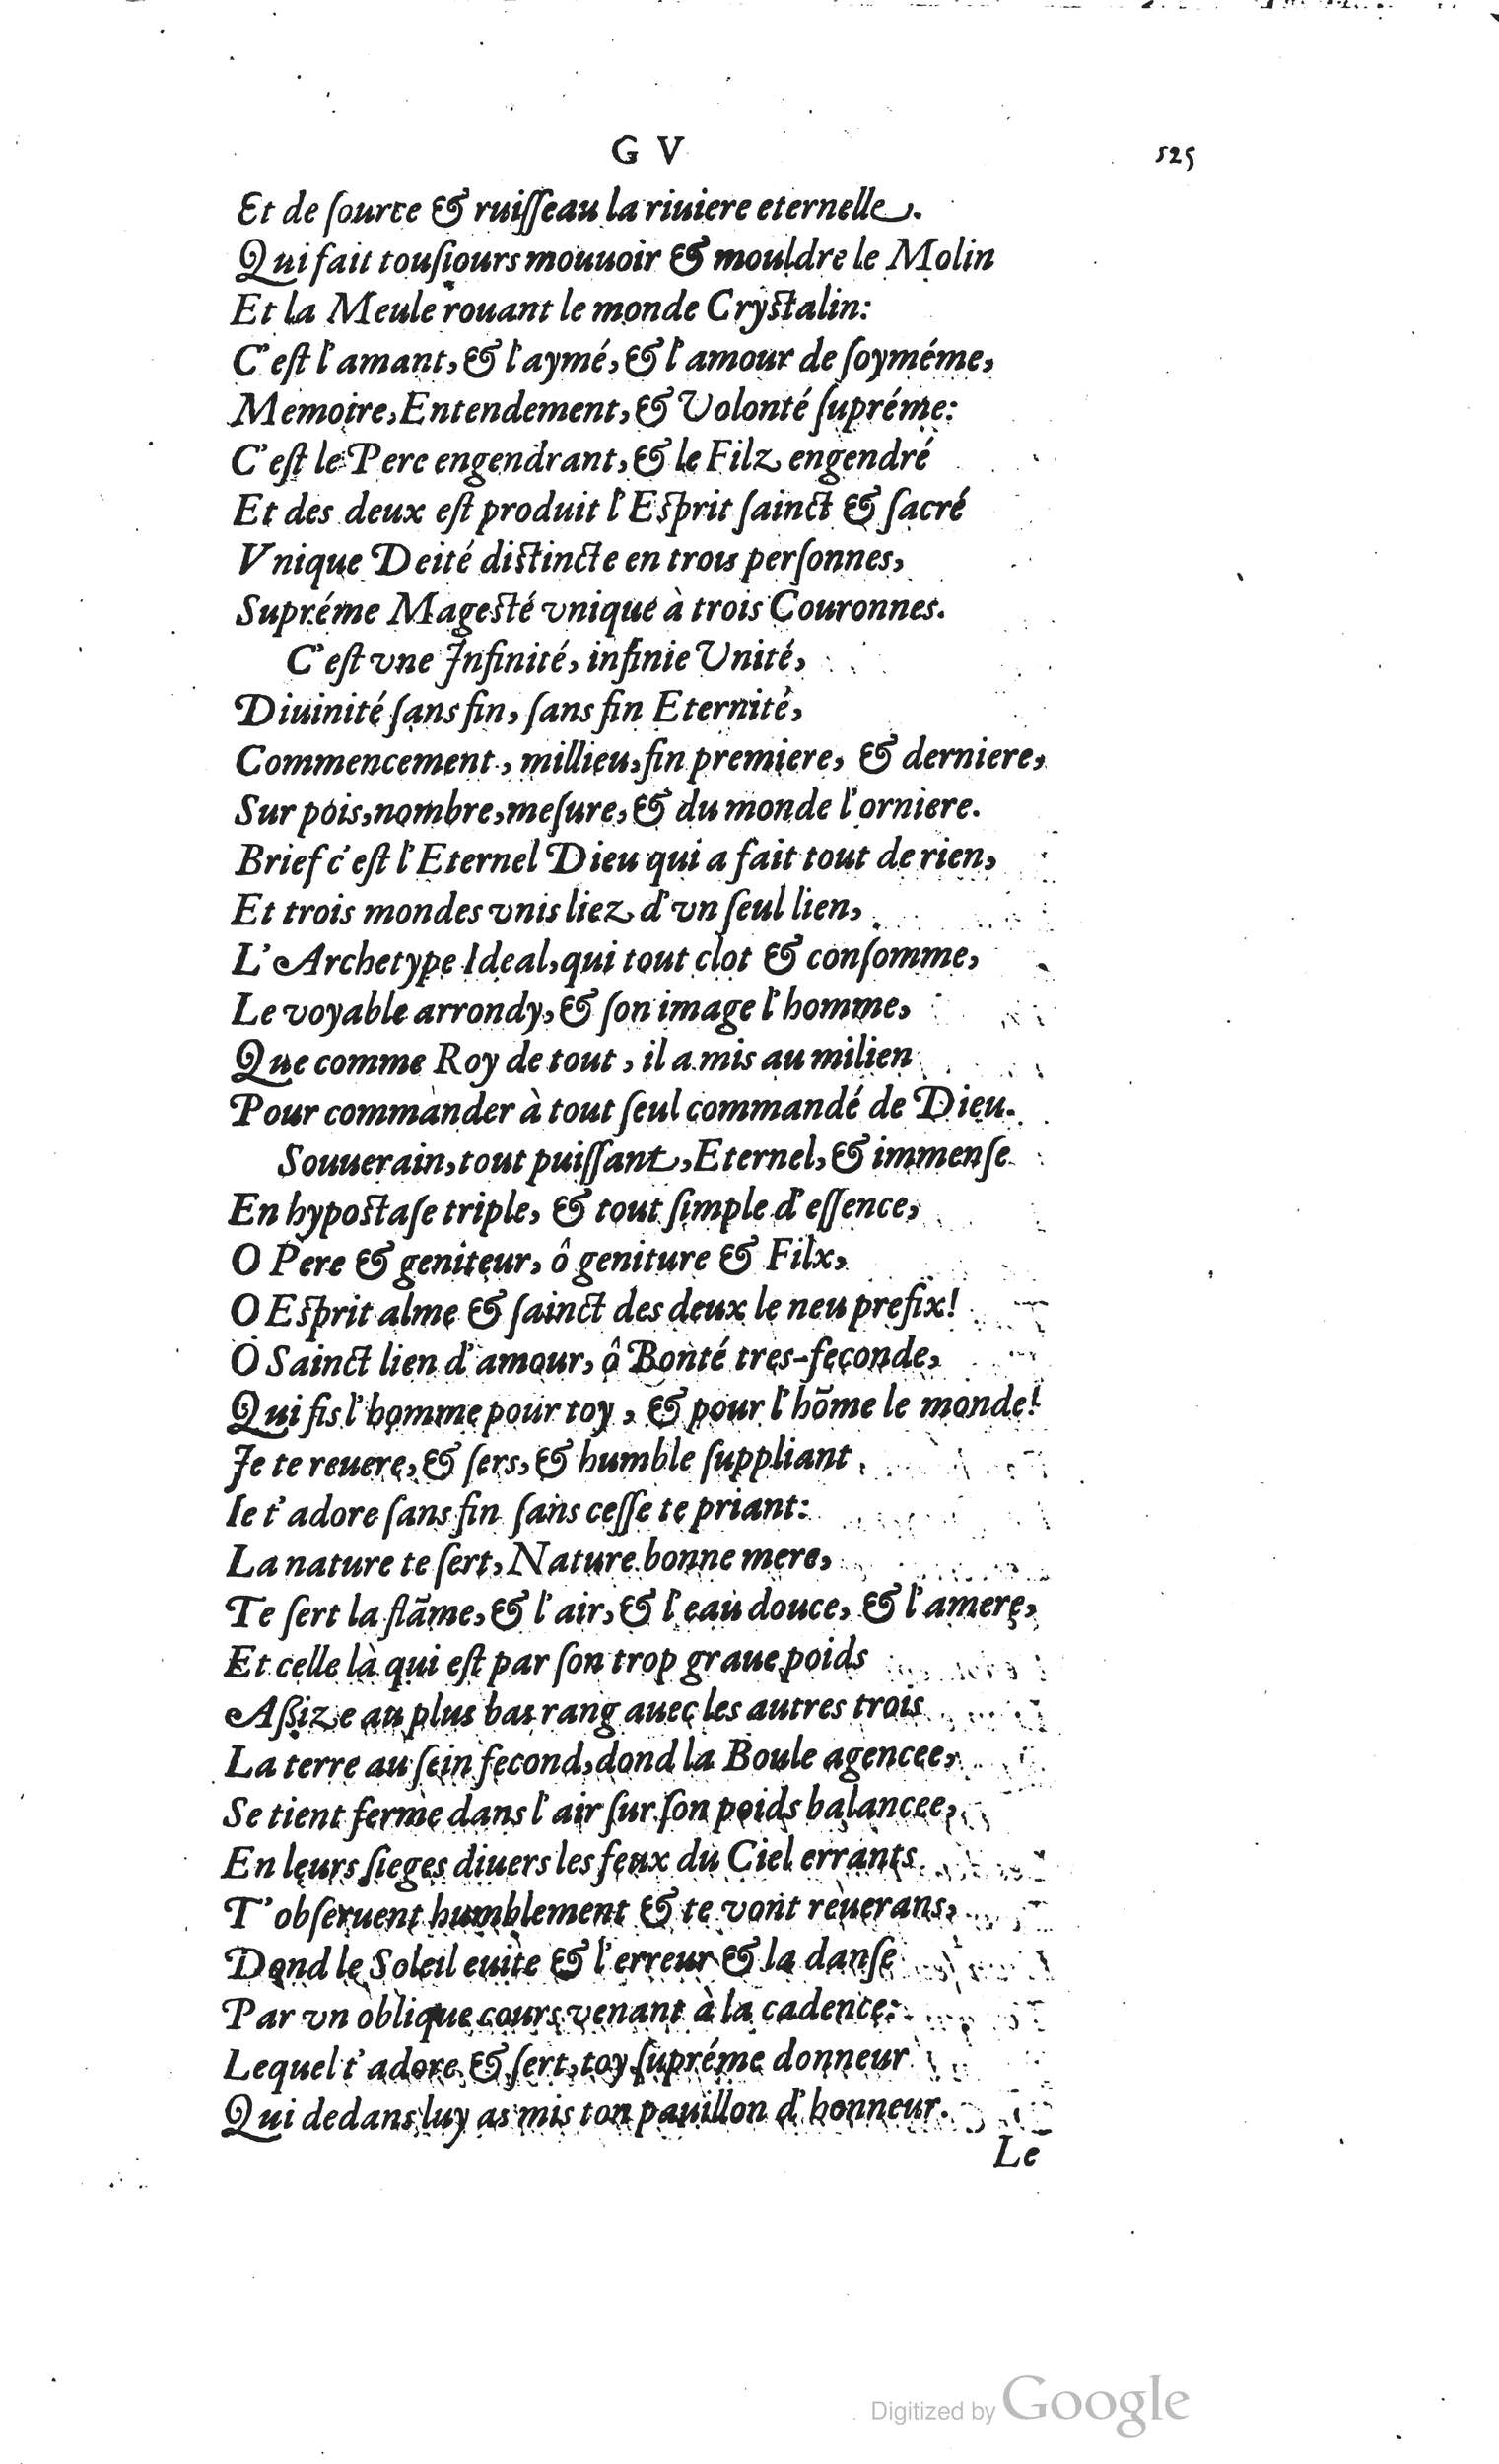 G V
525
Et de ſource & ruiſſeau la riuiere eternelle.
Qui fait touſiours mouuoir & mouldre le Molin
Et la Meule rouant le monde Cryſtalin:
C'eſt l'amant, & l'aymé, & l'amour de ſoyméme,
Memoire, Entendement, & Volonté ſupréme:
C'eſt le Pere engendrant, & le Filz engendré
Et des deux eſt produit l'Eſprit ſainct & ſacré
Vnique Deité diſtincte en trois perſonnes,
Supréme Mageſté vnique à trois Couronnes.
C'eſt vne Infinité, infinie Vnité,
Diuinité ſans fin, ſans fin Eternité,
Commencement, millieu, fin premiere, & derniere,
Sur pois, nombre, meſure, & du monde l'orniere.
Brief c'eſt l'Eternel Dieu qui a fait tout de rien,
Et trois mondes vnis liez d'vn ſeul lien,
L'Archetype Ideal, qui tout clot & conſomme,
Le voyable arrondy, & ſon image l'homme,
Que comme Roy de tout, il a mis au milien
Pour commander à tout ſeul commandé de Dieu.
Souuerain, tout puiſſant, Eternel, & immenſe
En hypoſtaſe triple, & tout ſimple d'eſſence,
O Pere & geniteur, ô geniture & Filx,
O Eſprit alme & ſainct des deux le neu prefix!
O Sainct lien d'amour, ô Bonté tres-feconde,
Qui fis l'homme pour toy, & pour l'hõme le monde!
Ie te reuere, & ſers, & humble ſuppliant
Ie t'adore ſans fin ſans ceſſe te priant:
La nature te ſert, Nature bonne mere,
Te ſert la flãme, & l'air, & l'eau douce, & l'amere,
Et celle là qui eſt par ſon trop graue poids
Aſsize au plus bas rang auec les autres trois
La terre au ſein fecond, dond la Boule agencee,
Se tient ferme dans l'air ſur ſon poids balancee,
En leurs ſieges diuers les feux du Ciel errants
T'obſeruent humblement & te vont reuerans,
Dond le Soleil euite & l'erreur & la danſe
Par vn oblique cours venant à la cadence:
Lequel t'adore & ſert, toy ſupréme donneur
Qui dedans luy as mis ton pauillon d'honneur.
Le
Digitized by Google